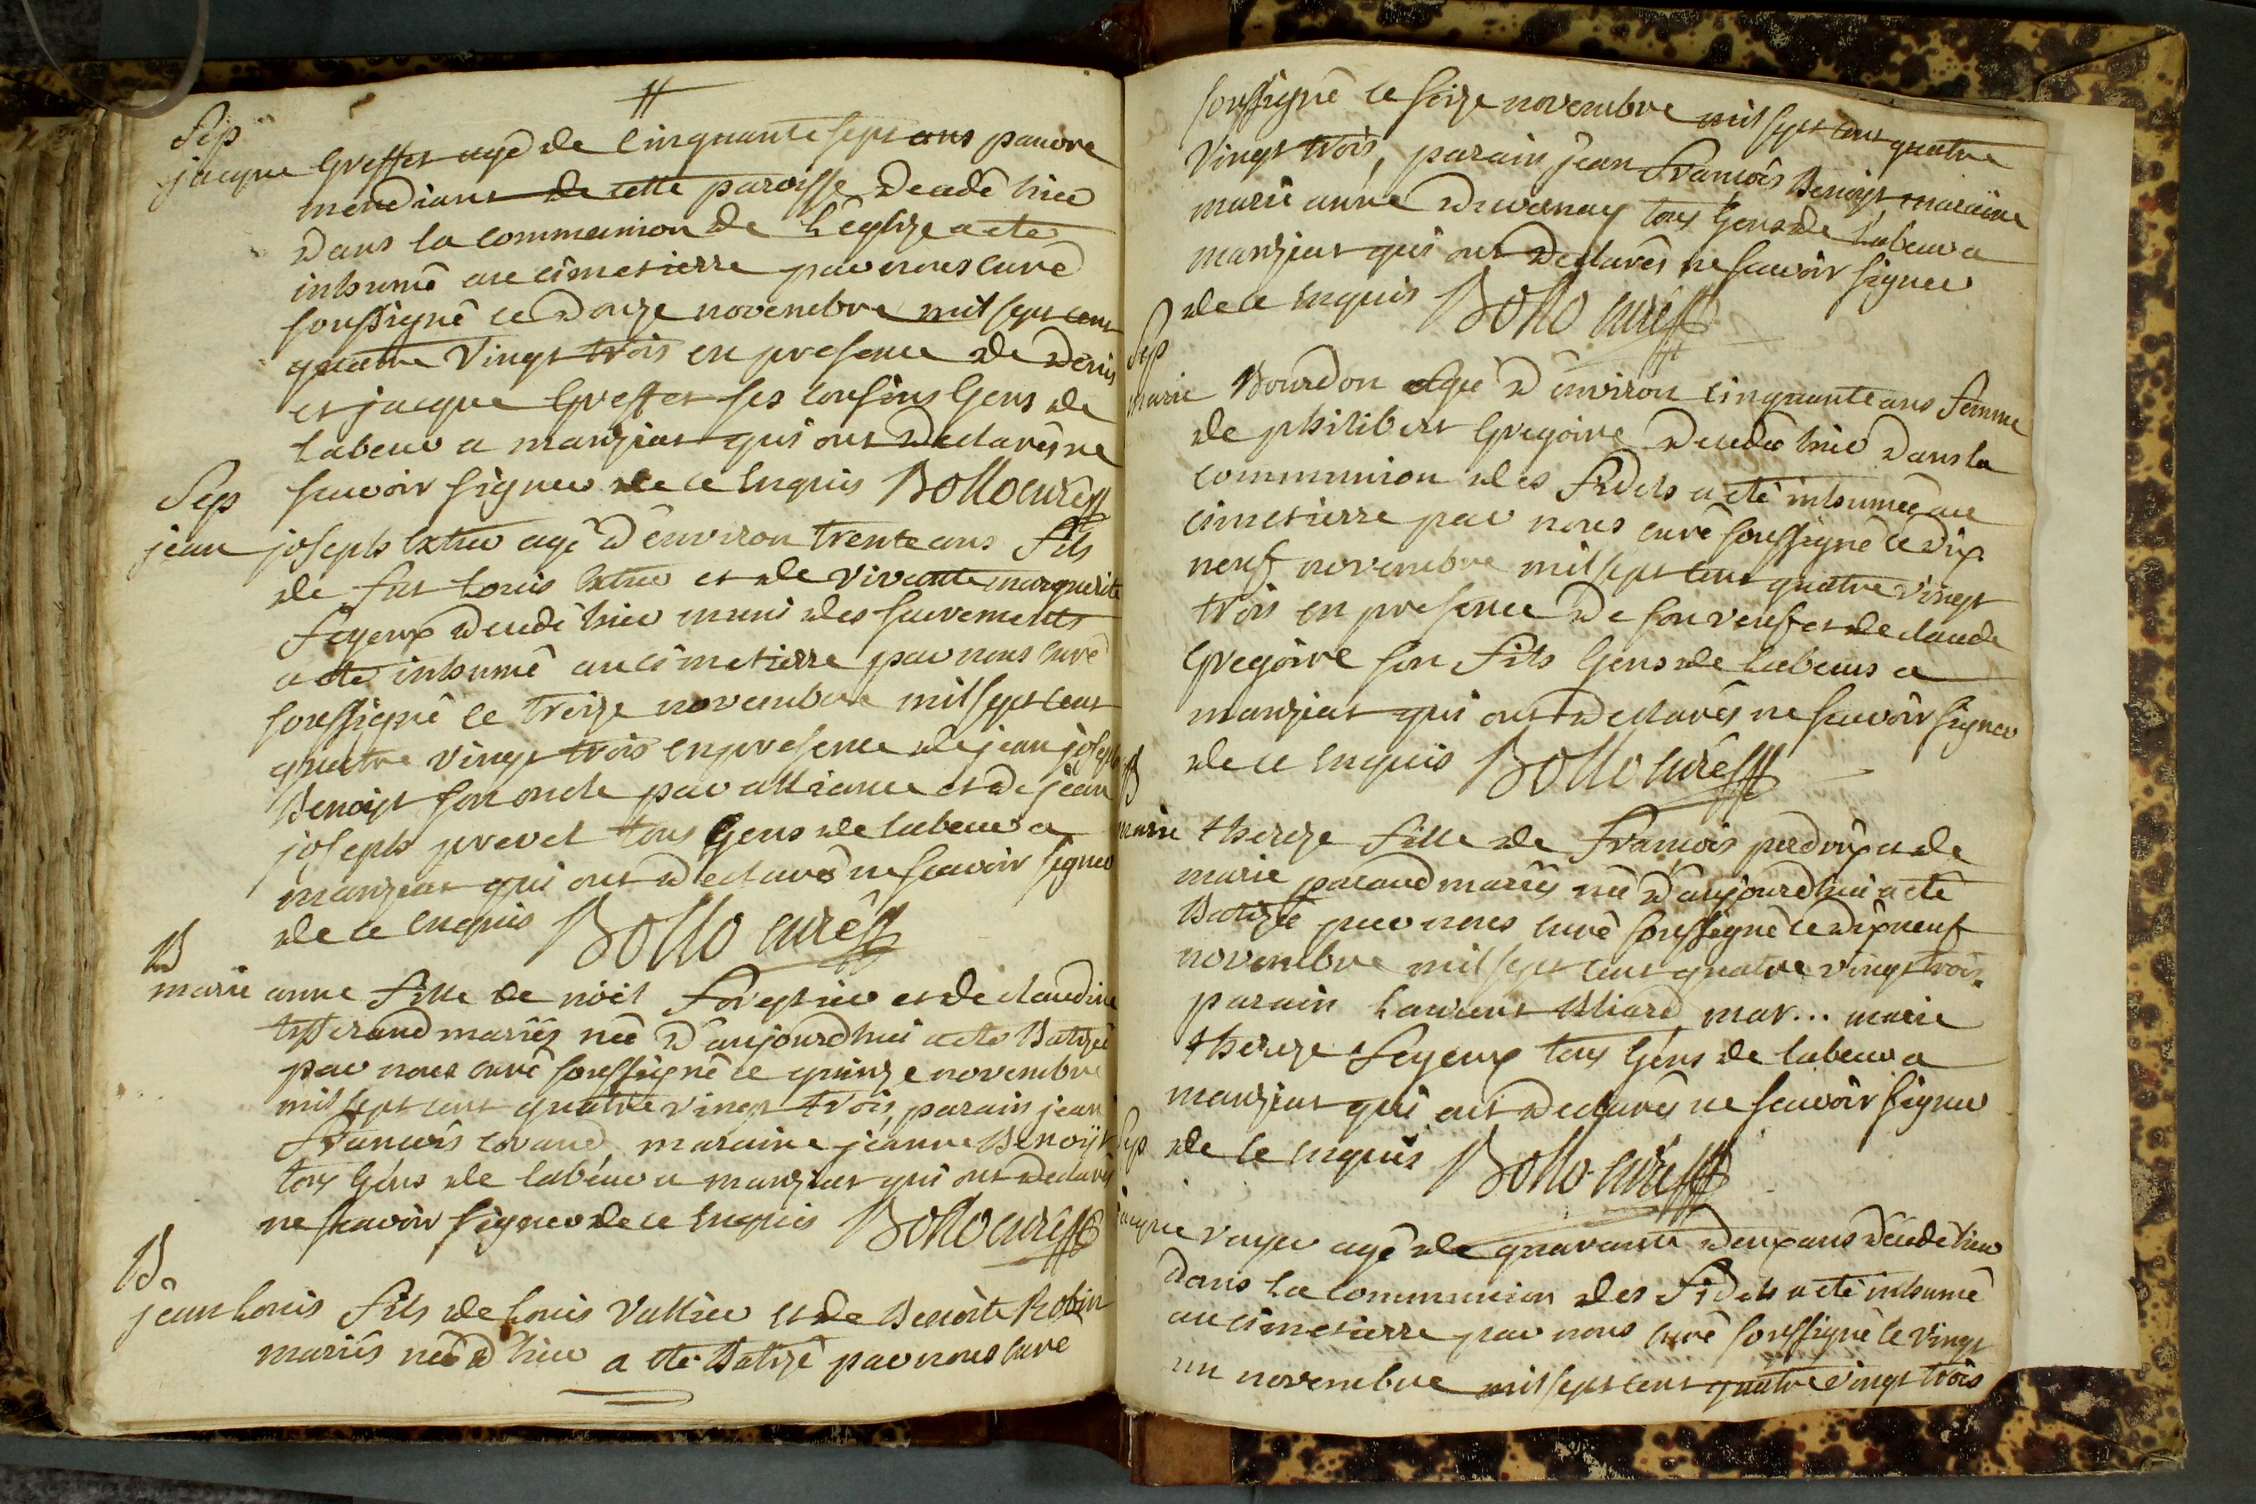 Sep
jacque Greffet agé de Cinquante sept ans pauvre
mendiant de cette paroisse decedé hier
dans la communion de L'eglize a été
inhumé au cimetierre par nous curé
soussigné ce douze novembre mil sept cent
quatre Vingt trois en presence de denis
et jacque Greffet ses cousins Gens de
labeur a manziat qui ont declarés ne
scavoir signer de ce Enquis Bollo curé
Sep
jean joseph agé d'environ trente ans fils
de fut Louis et de Vivante marguerite
feyeux decedé hier muni des sacrements
a été inhumé au cimetierre par nous curé
soussigné ce treize novembre mil sept cent
quatre Vingt trois en presence de jean joseph
Benoist son oncle par alliance et de jean
joseph prevel tous Gens de labeur a
manziat qui ont declarés ne scavoir signer
de ce enquis Bollo curé
B
marie anne fille de noël forestier et de claudine
tisserand mariés née d'aujourdhui a été Batizée
par nous curé soussigné ce quinze novembre
mil sept cent quatre vingt trois, parain jean
francois maraine jeanne Benoist
tous Géns de labeur a manziat qui ont declarés
ne scavoir signer de ce enquis Bollo curé
B
jean Louis fils de Louis Vallier et de Benoite Robin
mariés né d'hier a été Batizé par nous curé
soussigné ce seize novembre mil sept cent quatre
Vingt trois, parain jean francois Benoist maraine
marie anne Duvernay tous Gens de Labeur a
manziat qui ont declarés ne scavoir signer
de ce enquis Bollo curé
Sep
marie Bourdon agée d'environ cinquante ans femme
de philibert Gregoire decedée hier dans la
communion des fidels a été inhumée au
cimetierre par nous curé soussigné ce dix
neuf novembre mil sept cent quatre vingt
trois en presence de son veuf et de claude
Gregoire son fils Gens de labeur a
manziat qui ont declarés ne scavoir signer
de ce enquis Bollo curé
B
marie thereze fille de francois perdrix et de
marie pacaud mariés née d'aujourdhui a été
Batizée par nous curé soussigné ce dix neuf
novembre mil sept cent quatre vingt trois.
parain Laurent Bliard, mar... marie
thereze feyeux tous Gens de labeur a
manziat qui ont declarés ne scavoir signer
Sep de ce enquis Bollo curé
jacque voyer agé de quarante deux ans decedé hier
dans la communion des fidels a été inhumé
au cimetierre par nous curé soussigné le vingt
un novembre mil sept cent quatre vingt trois